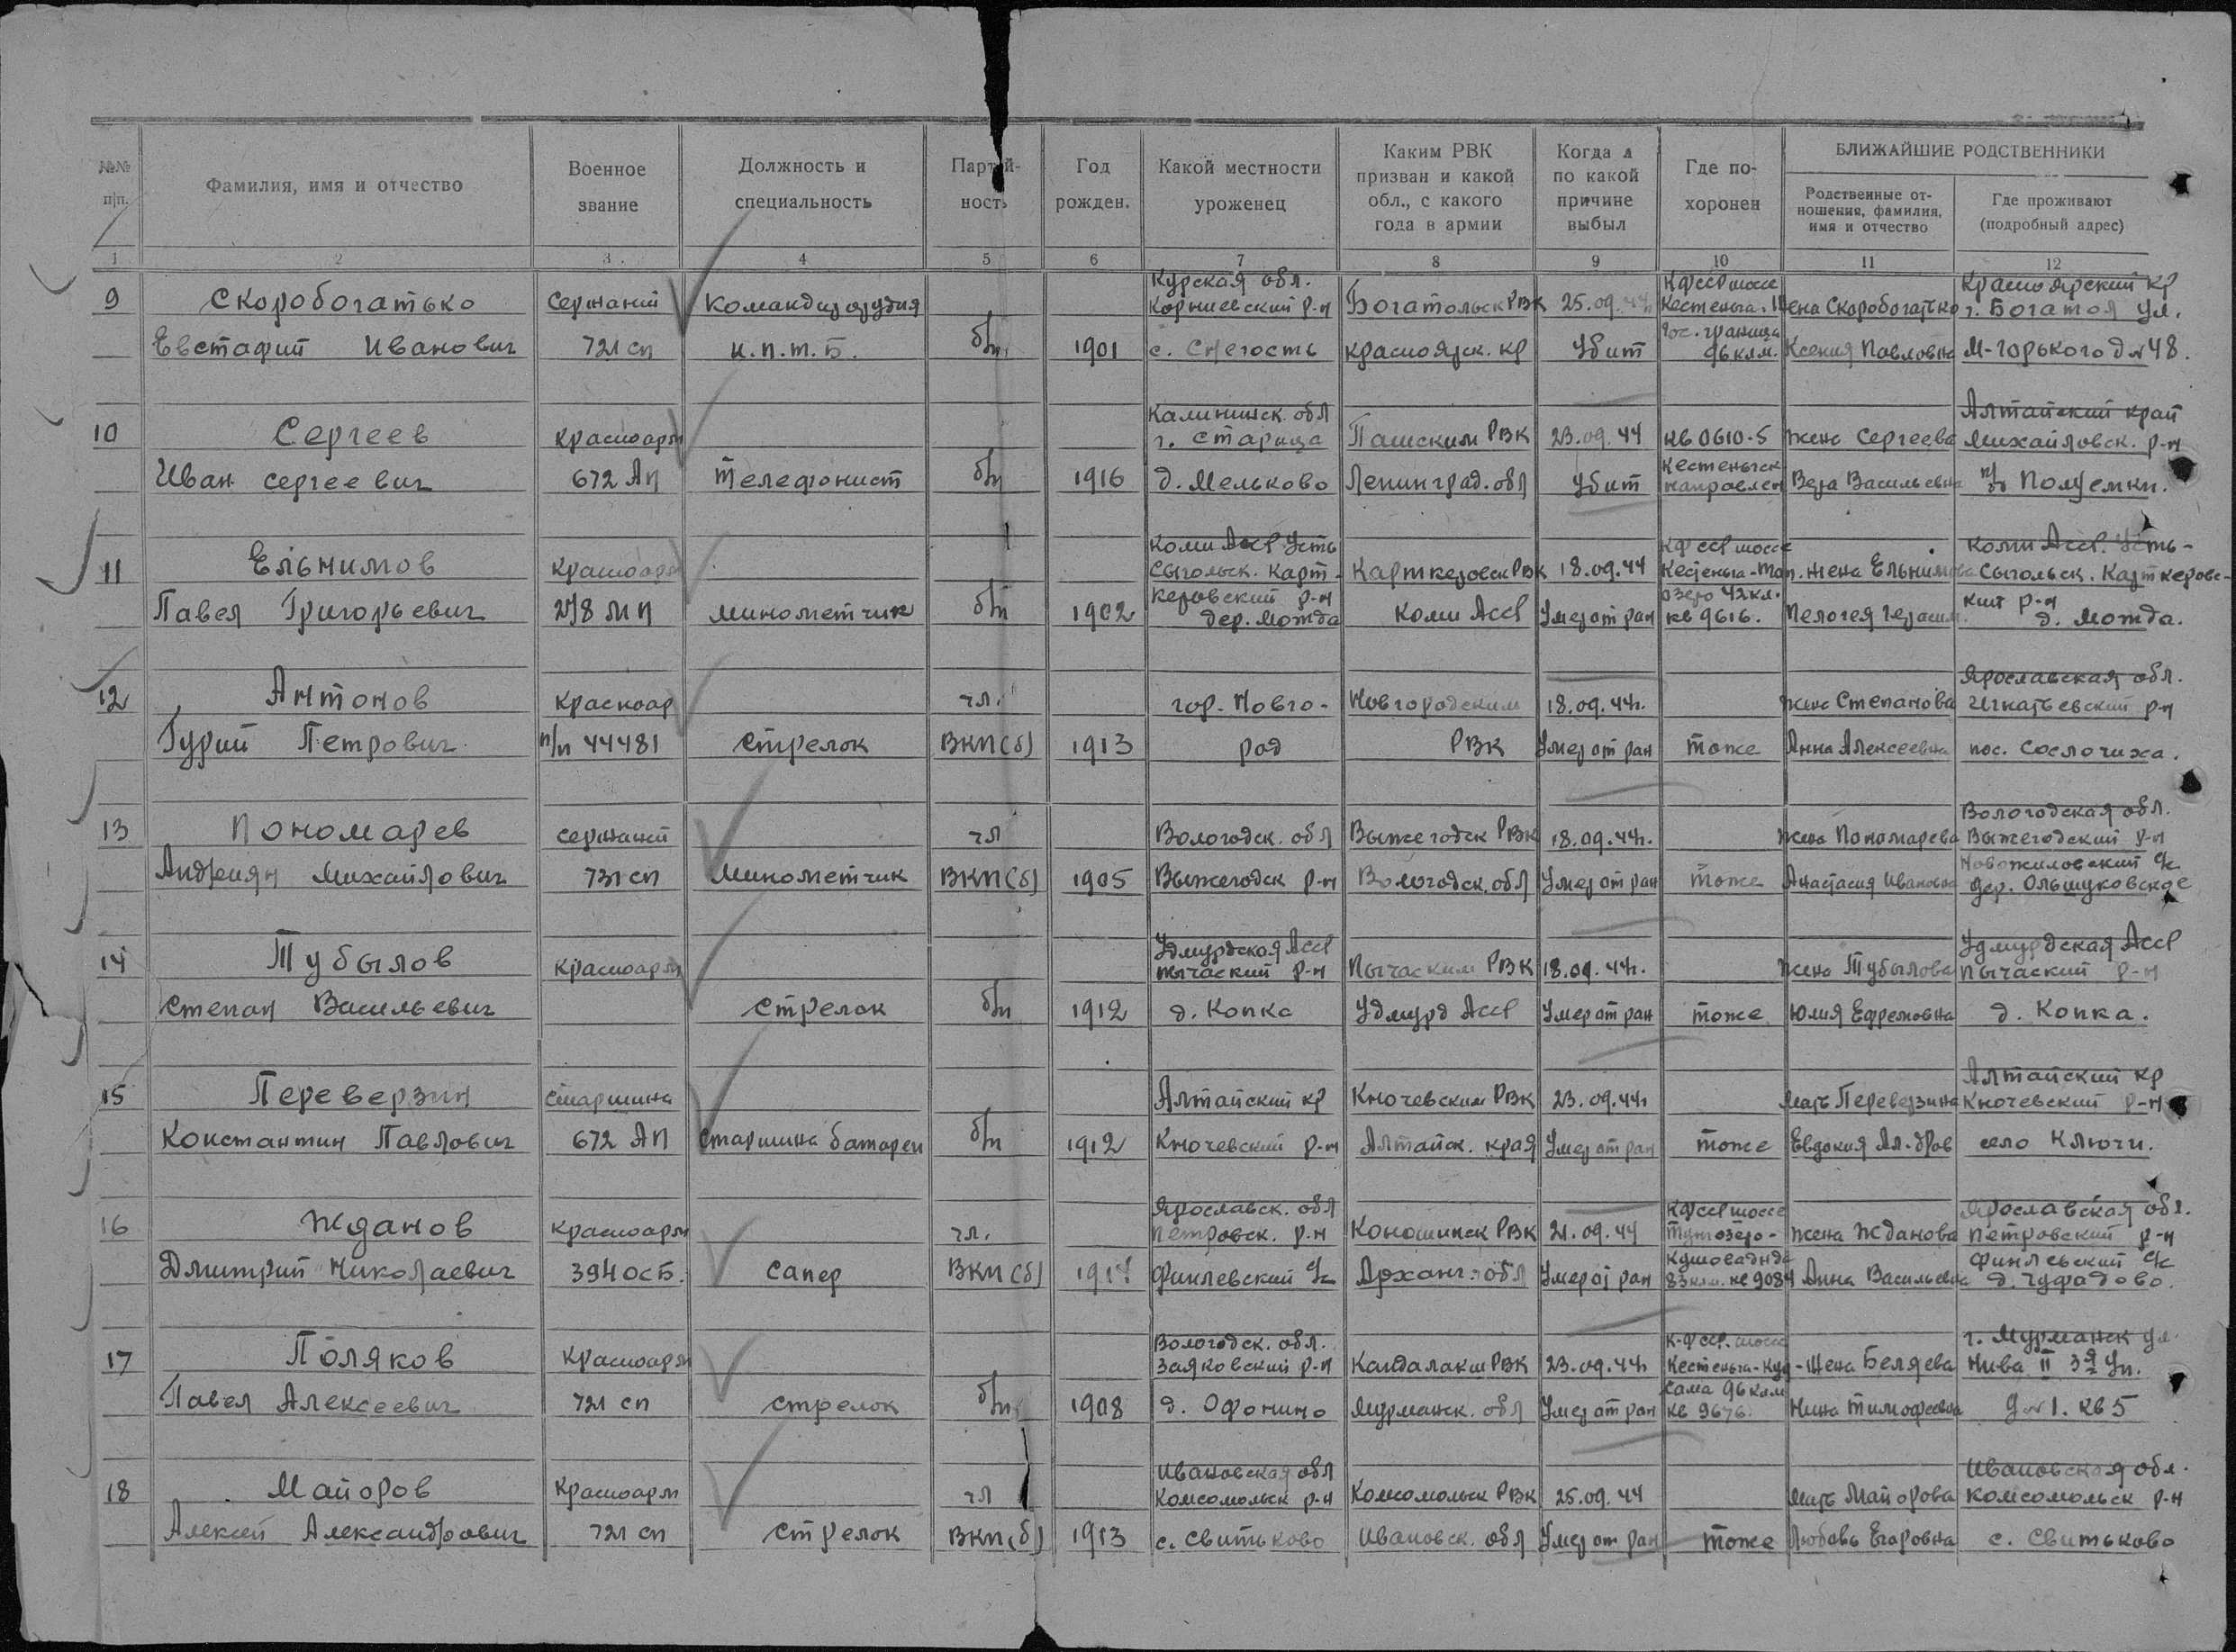 №№ п/п.
Фамилия, имя и отчество
Военное звание
Должность и специальность
Партийность
Год рожден.
Какой местности уроженец
Каким РВК призван и какой обл., с какого года в армии
Когда и по какой причине выбыл
Где похоронен
БЛИЖАЙШИЕ РОДСТВЕННИКИ
Родственные отношения, фамилия, имя и отчество
Где проживают (подробный адрес)
1 2 3 4 5 6 7 8 9 10 11 12
Курская обл. КФССР шоссе Красноярский кр
9 Скоробогатько Сержант Командир орудия Корниевский р-н Богатольск РВК 25.09.44 Кестеньга- Жена Скоробогатько г. Богатоя ул.
Гос. граница
Евстафий Иванович 721 сп и.п.т.б. б/п 1901 с. Снегость Красноярск. кр Убит 96 клм. Ксения Павловна М-Горького д № 48.
Калининск. обл Алтайский край
10 Сергеев Красноарм г. Старица Пашским РВК 23.09.44 кв 0610-5 жена Сергеева Михайловск. р-н
Кестеньгск
Иван Сергеевич 672 АП Телефонист б/п 1916 д. Мельково Ленинград. обл Убит направлен Вера Васильевна п/о Полуямки.
Коми АССР Усть КФССР шоссе Коми АССР. Усть-
11 Ельнимов Красноарм Сысольск. Карт- Карткеровск РВК 18.09.44 Кестеньга-Топ. жена Ельнимова Сысольск. Карткеров-
керовский р-н озеро 42 кл. кий р-н
Павел Григорьевич 278 МП минометчик б/п 1902 дер. Можда Коми АССР Умер от ран кв 9616. Пелогея Герасим. д. Можда.
Ярославская обл.
12 Антонов Красноар чл. гор. Новго- Новгородским 18.09.44г. жена Степанова Игнатьевский р-н
Гурий Петрович п/п 44481 Стрелок ВКП(б) 1913 род РВК Умер от ран тоже Анна Алексеевна пос. Сослочиха.
Вологодская обл.
13 Пономарев Сержант чл Вологодск. обл Выжегодск РВК 18.09.44г. жена Пономарева Выжегодский р-н
Новожиловский с/с
Андреян Михайлович 731 сп Минометчик ВКП(б) 1905 Выжегодск р-н Вологодск. обл Умер от ран тоже Анастасия Ивановна дер. Ольшуковское
Удмурдская АССР Удмурдская АССР
14 Тубылов Красноарм пычаский р-н Пычаским РВК 18.09.44г. жена Тубылова пычаский р-н
Степан Васильевич Стрелок б/п 1912 д. Копка Удмурд АССР Умер от ран тоже Юлия Ефремовна д. Копка.
Алтайский кр
15 Переверзин Старшина Алтайский кр Ключевским РВК 23.09.44г мать Переверзина Ключевский р-н
Константин Павлович 672 АП Старшина батареи б/п 1912 Ключевский р-н Алтайск. края Умер от ран тоже Евдокия Ал-дров село Ключи.
Ярославск. обл КФССР шоссе Ярославская обл.
16 Жданов Красноарм чл. Петровск. р-н Коношинск РВК 21.09.44 Тунгозеро- жена Жданова Петровский р-н
Кушовадида Финлевский с/с
Дмитрий Николаевич 394 ОСБ. Сапер ВКП(б) 1917 Финлевский с/с Арханг. обл Умер от ран 83 клм. кв 9084 Анна Васильевна д. Чуфадово.
Вологодск. обл. К-ФССР. шоссе г. Мурманск ул.
17 Поляков Красноарм Заяковский р-н Кандалакш РВК 23.09.44г Кестеньга-Куу- Жена Беляева Нива II 3й Уч.
сама 96 клм
Павел Алексеевич 721 сп Стрелок б/п 1908 д. Офонино Мурманск. обл Умер от ран кв 9676. Нина Тимофеевна д № 1. кв 5
Ивановская обл Ивановская обл.
18 Майоров Красноарм чл Комсомольск р-н Комсомольск РВК 25.09.44 мать Майорова Комсомольск р-н
Алексей Александрович 721 сп Стрелок ВКП(б) 1913 с. Свитьково Ивановск. обл Умер от ран тоже Любовь Егоровна с. Свитьково